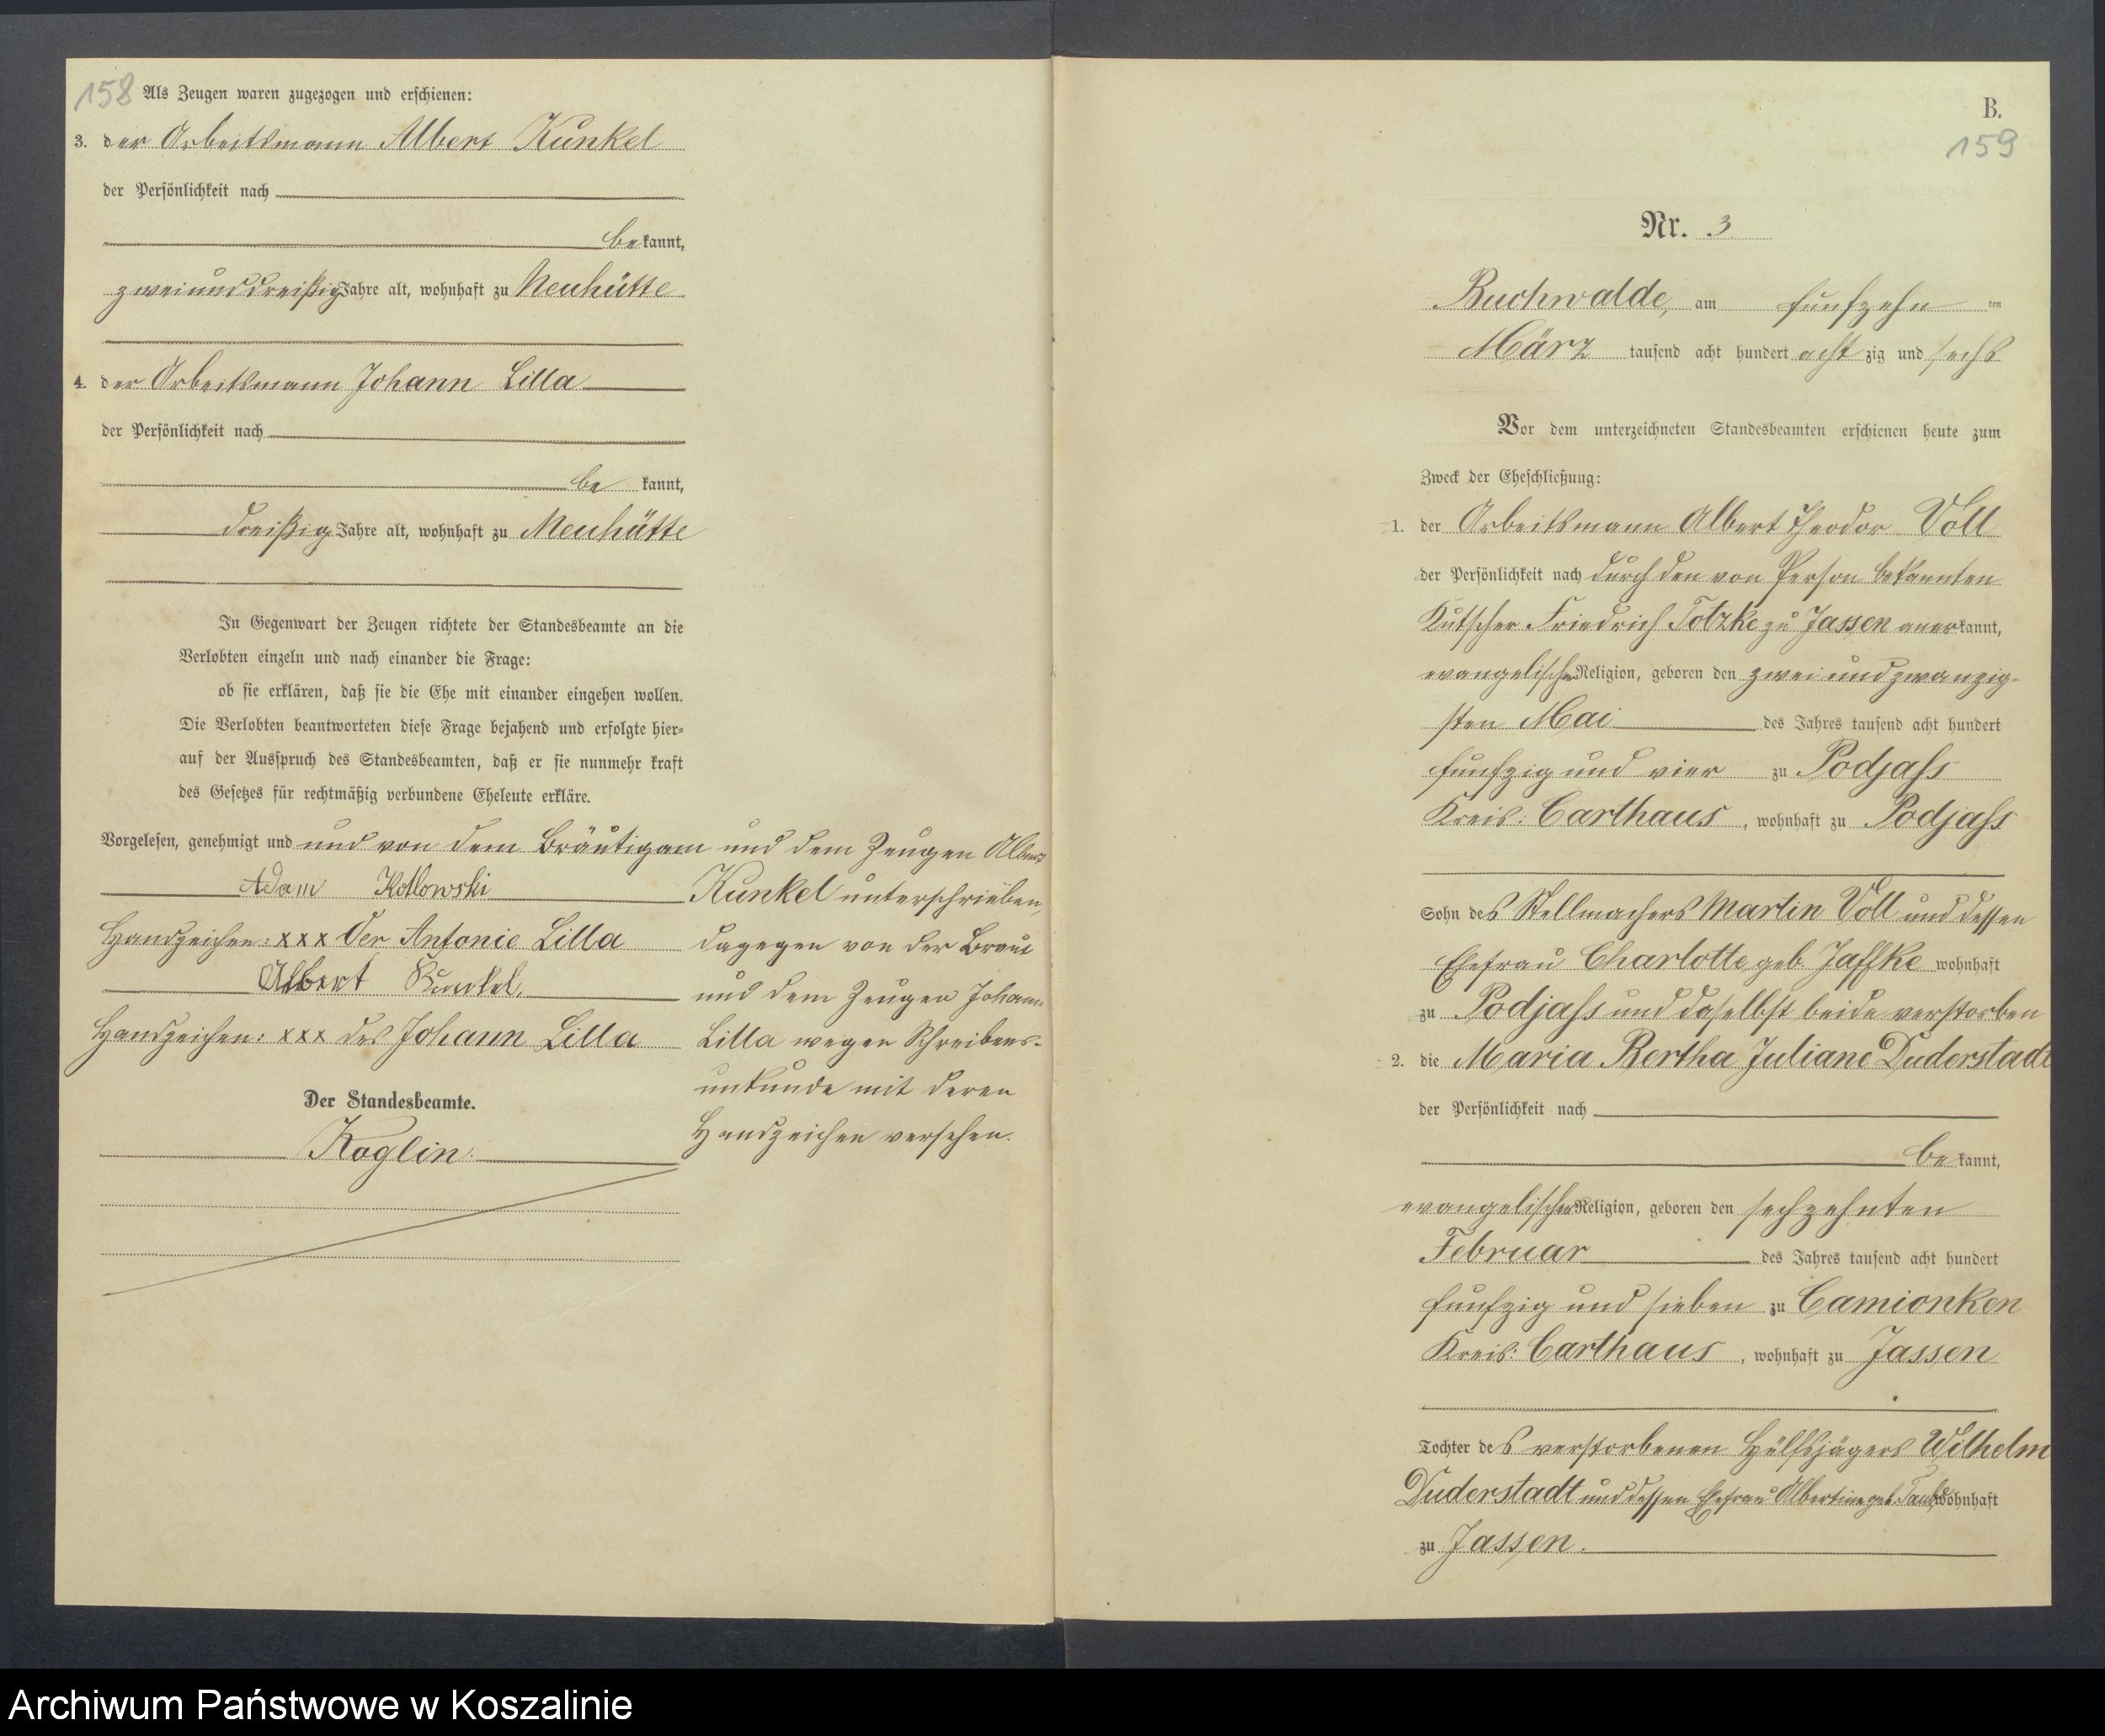 158 Als Zeugen waren zugezogen und erschienen:
3. der Arbeitsmann Albert Kunkel
der Persönlichkeit nach
bekannt,
zweiunddreißig Jahre alt, wohnhaft zu Neuhütte
4. der Arbeitsmann Johann Lilla
der Persönlichkeit nach
be kannt,
dreißig Jahre alt, wohnhaft zu Neuhütte
In Gegenwart der Zeugen richtete der Standesbeamte an die
Verlobten einzeln und nach einander die Frage:
ob sie erklären, daß sie die Ehe mit einander eingehen wollen.
Die Verlobten beantworteten diese Frage bejahend und erfolgte hier-
auf der Ausspruch des Standesbeamten, daß er sie nunmehr kraft
des Gesetzes für rechtmäßig verbundene Eheleute erkläre.
Vorgelesen, genehmigt und und von dem Bräutigam und dem Zeugen Albert
Adam Kotlowski
Kunkel unterschrieben,
Handzeichen: xxx der Antonie Lilla
dagegen von der Braut
Albert Kunkel.
und dem Zeugen Johann
Handzeichen: xxx des Johann Lilla
Lilla wegen Schreibens-
unkunde mit deren
Der Standesbeamte.
Handzeichen versehen.
Koglin.
B.
159
Nr. 3
Buchwalde, am funfzehn ten
März tausend acht hundert acht zig und sechs
Vor dem unterzeichneten Standesbeamten erschienen heute zum
Zweck der Eheschließung:
1. der Arbeitsmann Albert Theodor Voll
der Persönlichkeit nach durch den von Person bekannten
Kutscher Friedrich Totzke zu Jassen anerkannt,
evangelischer Religion, geboren den zwei und zwanzig-
sten Mai des Jahres tausend acht hundert
funfzig und vier zu Podjass
Kreis: Carthaus, wohnhaft zu Podjass
Sohn des Stellmachers Martin Voll und dessen
Ehefrau Charlotte geb. Jaffke wohnhaft
zu Podjass und daselbst beide verstorben
2. die Maria Bertha Juliane Duderstadt
der Persönlichkeit nach
be kannt,
evangelischer Religion, geboren den sechzehnten
Februar des Jahres tausend acht hundert
funfzig und sieben zu Camionken
Kreis: Carthaus, wohnhaft zu Jassen
Tochter des verstorbenen Hülfsjägers Wilhelm
Duderstadt und dessen Ehefrau Albertine geb. wohnhaft
zu Jassen.
Archiwum Państwowe w Koszalinie